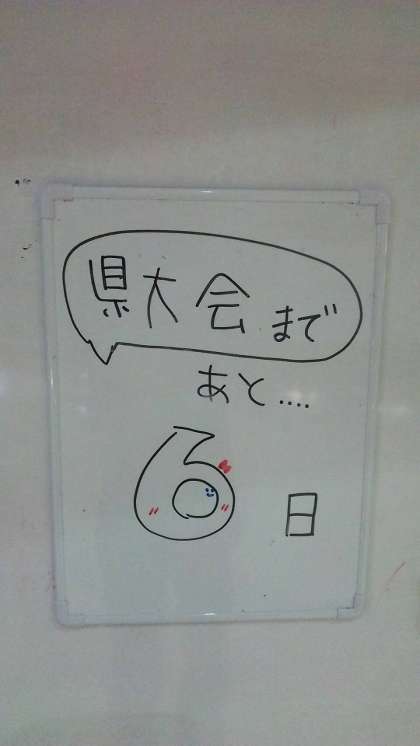 県大会まで
あと....
6日